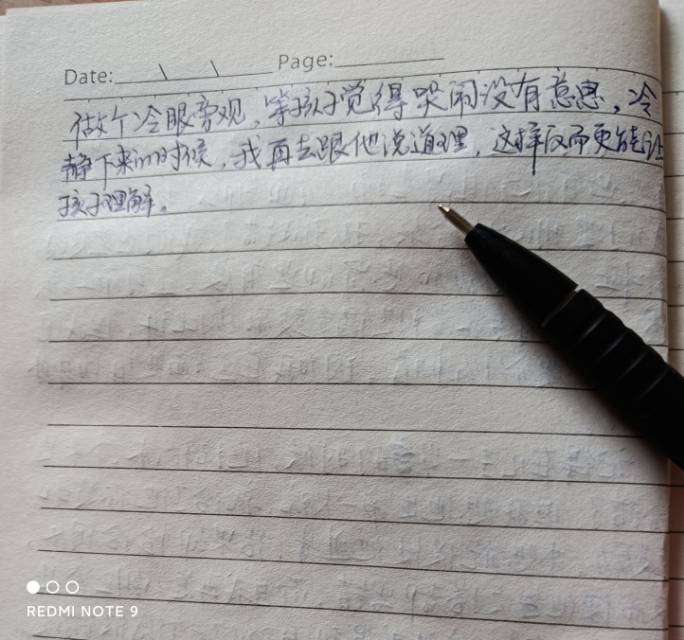 Date: \ \ Page:
做个冷眼旁观,等孩子觉得哭闹没有意思,冷
静下来的时候,我再去跟他说道理,这样反而更能让
孩子理解。
REDMI NOTE 9